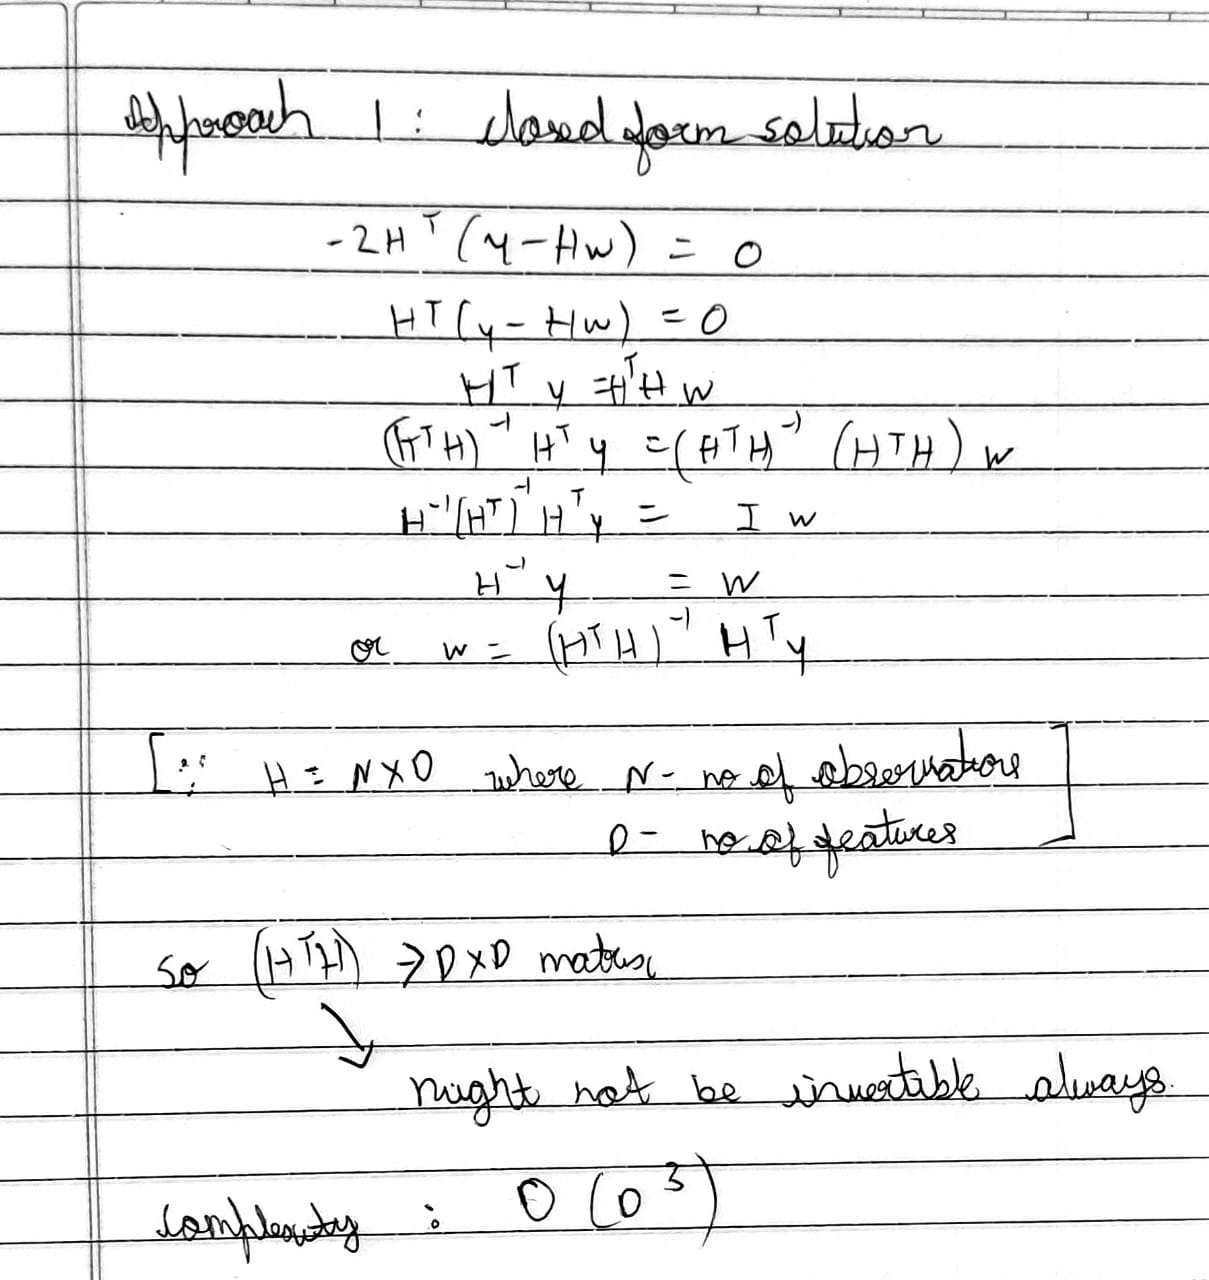 Approach 1 : closed form solution
-2Hᵀ (y - Hw) = 0
Hᵀ(y - Hw) = 0
Hᵀ y = HᵀH w
(HᵀH)⁻¹ Hᵀ y = (HᵀH)⁻¹ (HᵀH) w
H⁻¹(Hᵀ)⁻¹ Hᵀy = I w
H⁻¹ y = w
or w = (HᵀH)⁻¹ Hᵀy
[∵ H = N×D where N - no of observations
D - no of features ]
So (HᵀH) → D×D matrix
↘
might not be invertible always.
Complexity : O(D³)